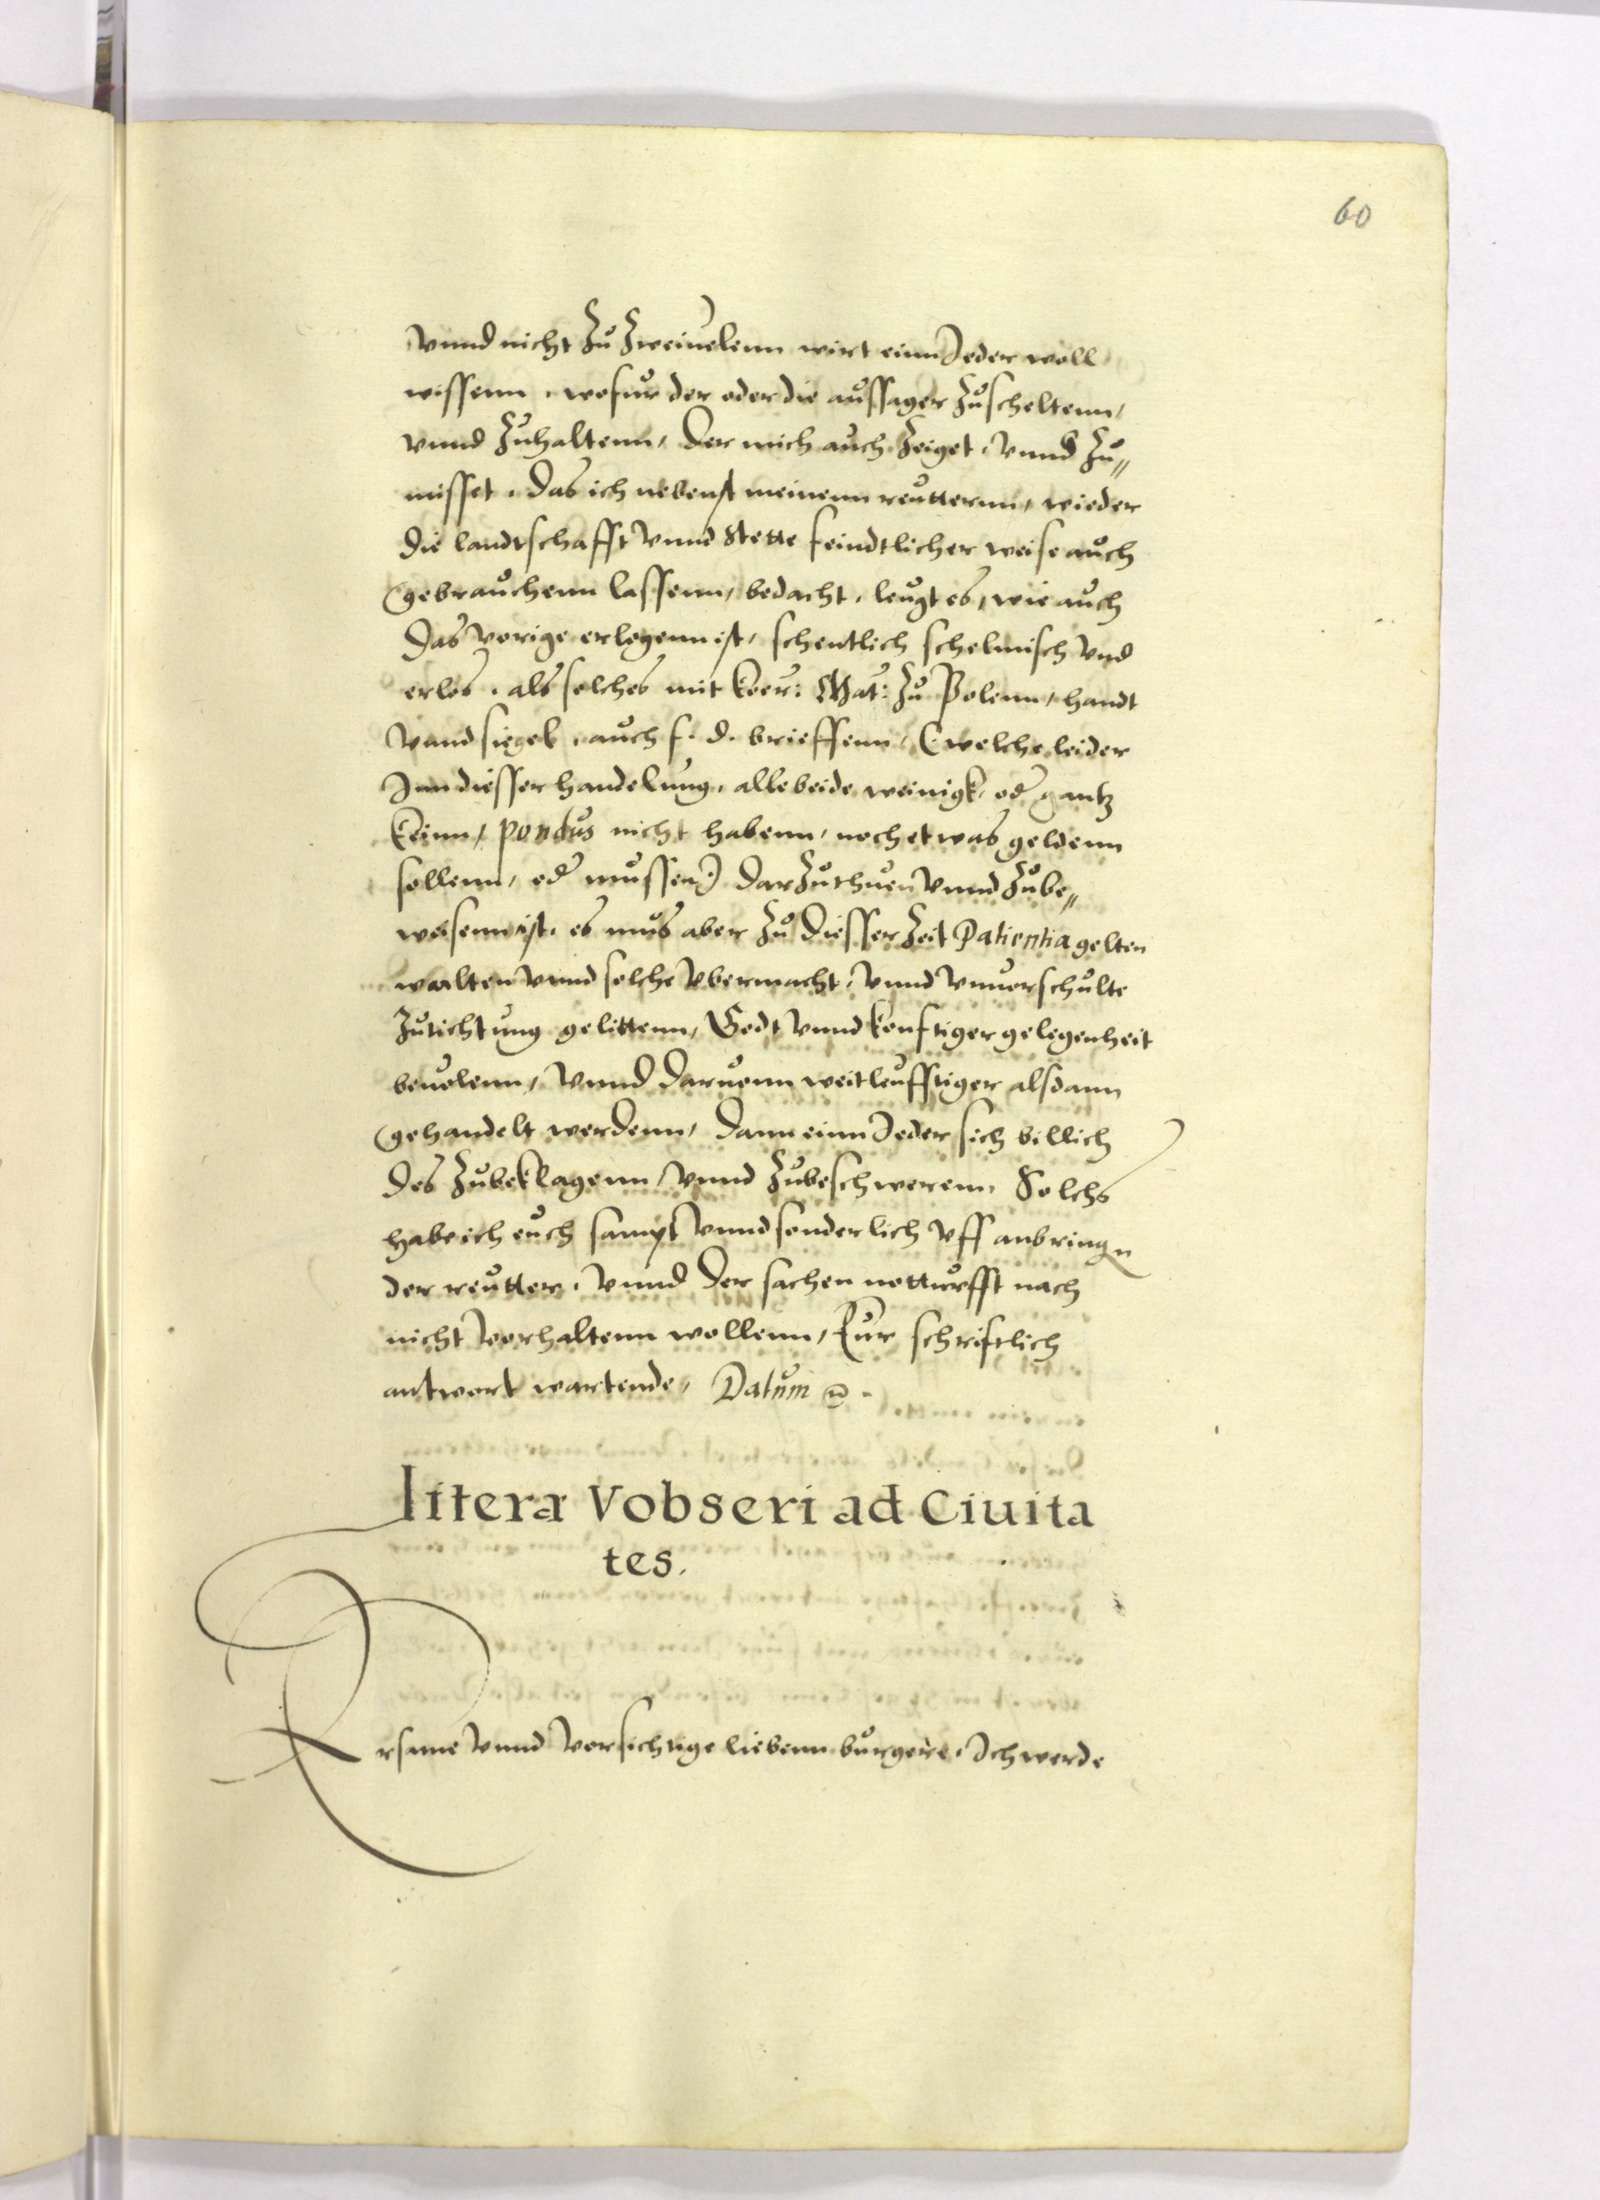 60
vnnd nicht zu zweiuelenn wirt einn Jeder woll
wissenn, wofur der oder die aussager zuscheltenn,
vnnd zuhaltenn, der mich auch zeiget, vnnd zu„
misset, das ich nebenst meinenn reutternn, wieder
die landtschafft vnnd Stette feindtlicher weise auch
gebrauchenn lassenn, bedacht, leugt es, wie auch
das vorige erlogenn ist, schentlich schelmisch vnd
erlos, als solches mit koer: Mat: zu Polenn, handt
vnnd siegel, auch f. d. brieffenn, (welche leider
Jnn diesser handelung, alle beide weinigk, od gantz
keinn, pondus nicht habenn, noch etwas geldenn
sollenn, od mussen) dar zuthuen vnnd zube„
weisenn ist, es mus aber zu diesser zeit Patientia gelten
walten vnnd solche vbermacht, vnnd vnuorschulte
zutichtung gelittenn, Godt vnnd konftiger gelegenheit
beuolenn, vnnd daruonn weitleufftiger alsdann
gehandelt werdenn, dann einn Jeder sich billich
des zubeklagenn, vnnd zubeschwerenn Solchs
habe ich euch sampt vnnd sonderlich vff anbringn
der reutter, vnnd der sachen notturfft nach
nicht vorhaltenn wollenn, Eur schriftlich
antwort wartende, Datum
litera Vobseri ad Ciuita
tes.
Ersame vnnd vorsichtige liebenn burgere, Ich werde